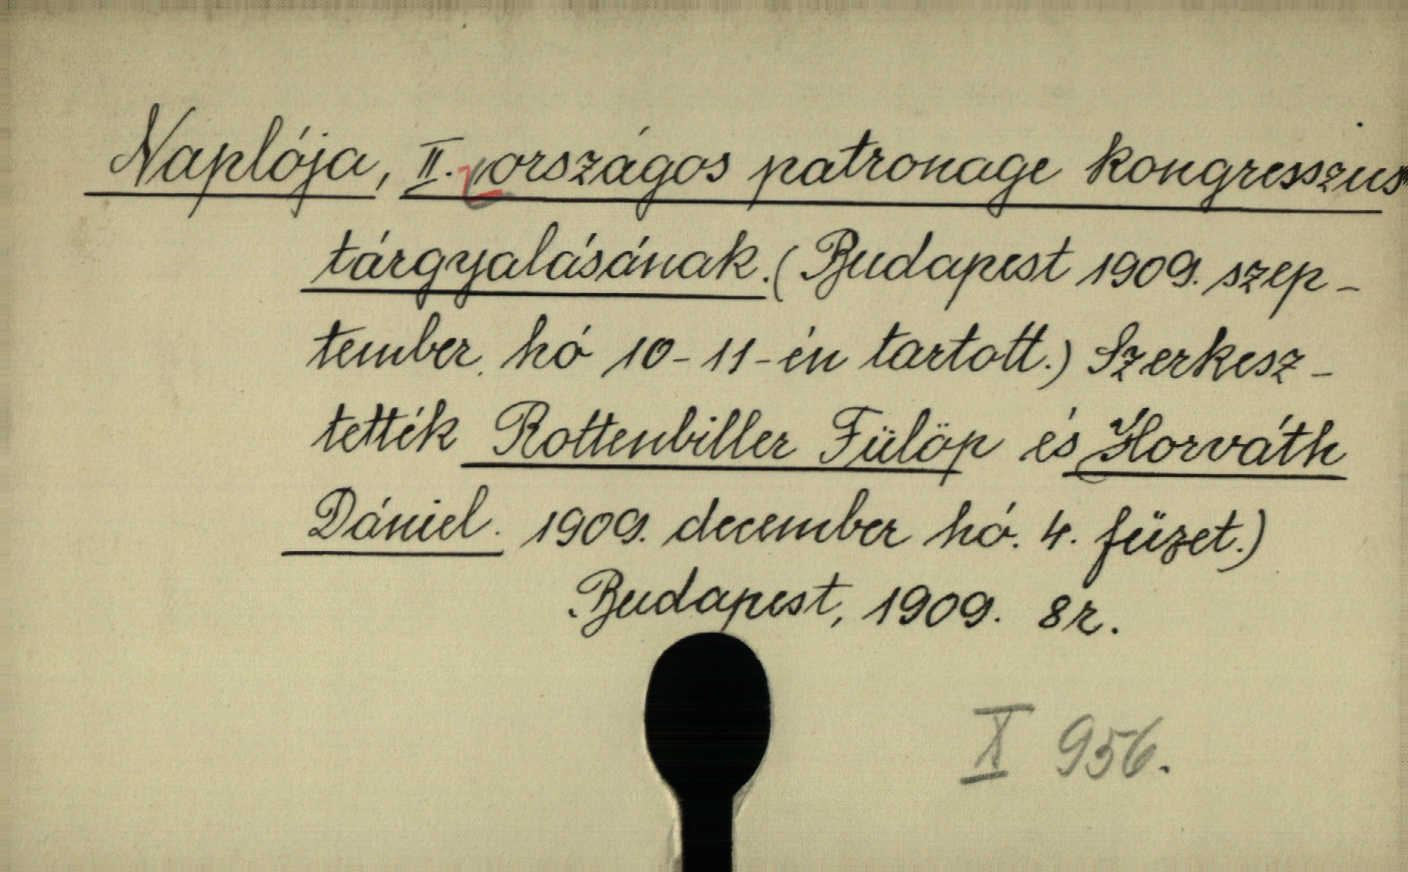 Naplója, II. országos patronage kongresszus
tárgyalásának. (Budapest 1909. szep-
tember hó 10-11-én tartott.) Szerkesz-
tették Rottenbiller Fülöp és Horváth
Dániel. 1909. december hó. 4. füzet.)
Budapest, 1909. 8r.
X 956.